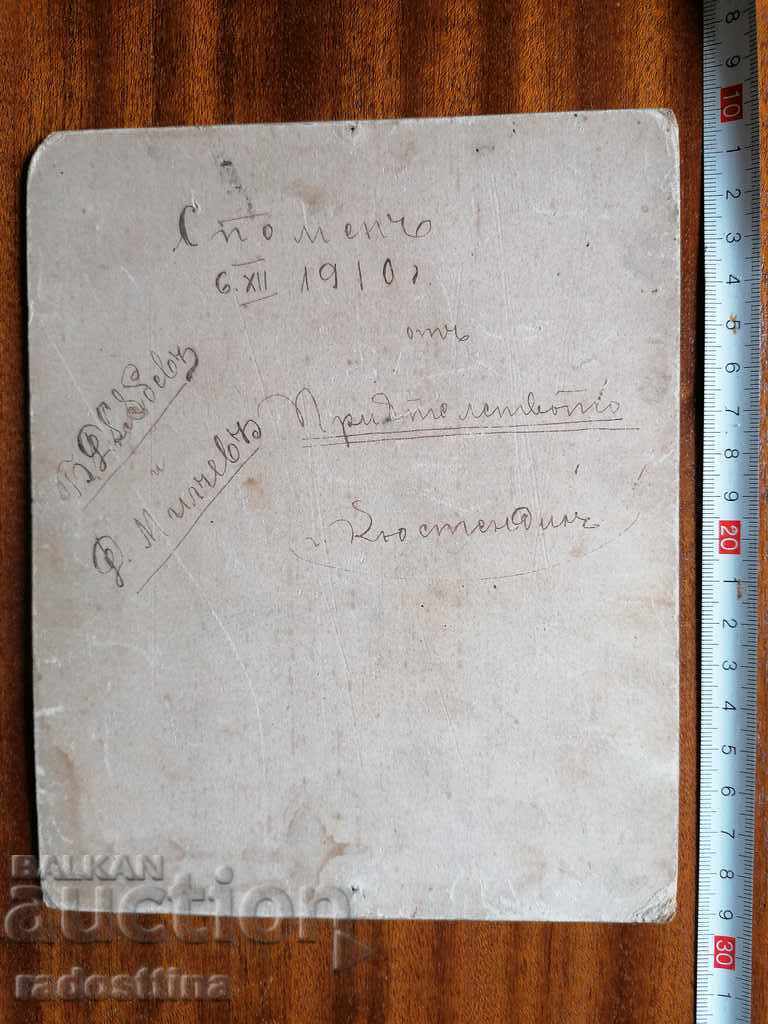 Споменъ
6.XII 1910 г.
отъ
Приятелството
г. Кюстендилъ
и
Ф. Милчевъ
8 9 10 1 2 3 4 5 6 7 8 9 20 1 2 3 4 5 6 7 8 9 30
BALKAN
auction
radosttina